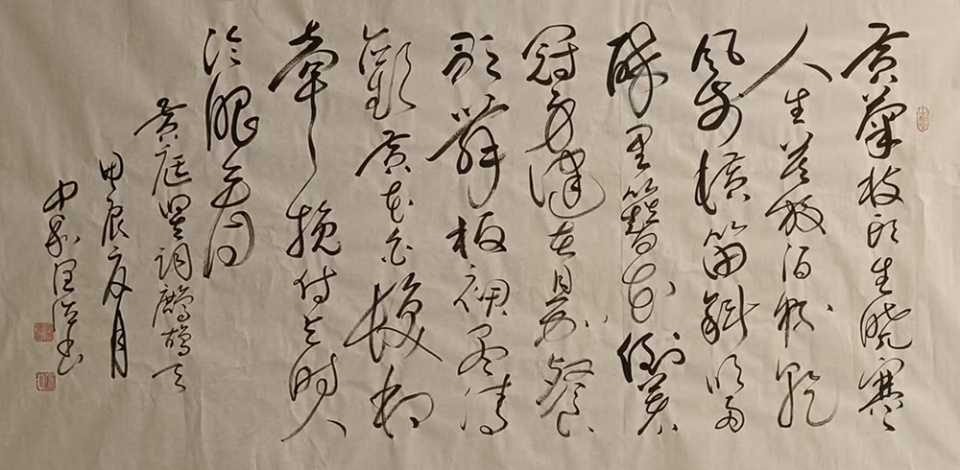 黄菊枝头生曉寒
人生莫放酒杯乾
风前横笛斜吹雨
醉里簪花倒著
冠身健在且加餐
歌舞板裙尽清
歡黄花白髮相
牵挽付与时人
冷眼看
黄庭坚词鹧鸪天
甲辰夏月